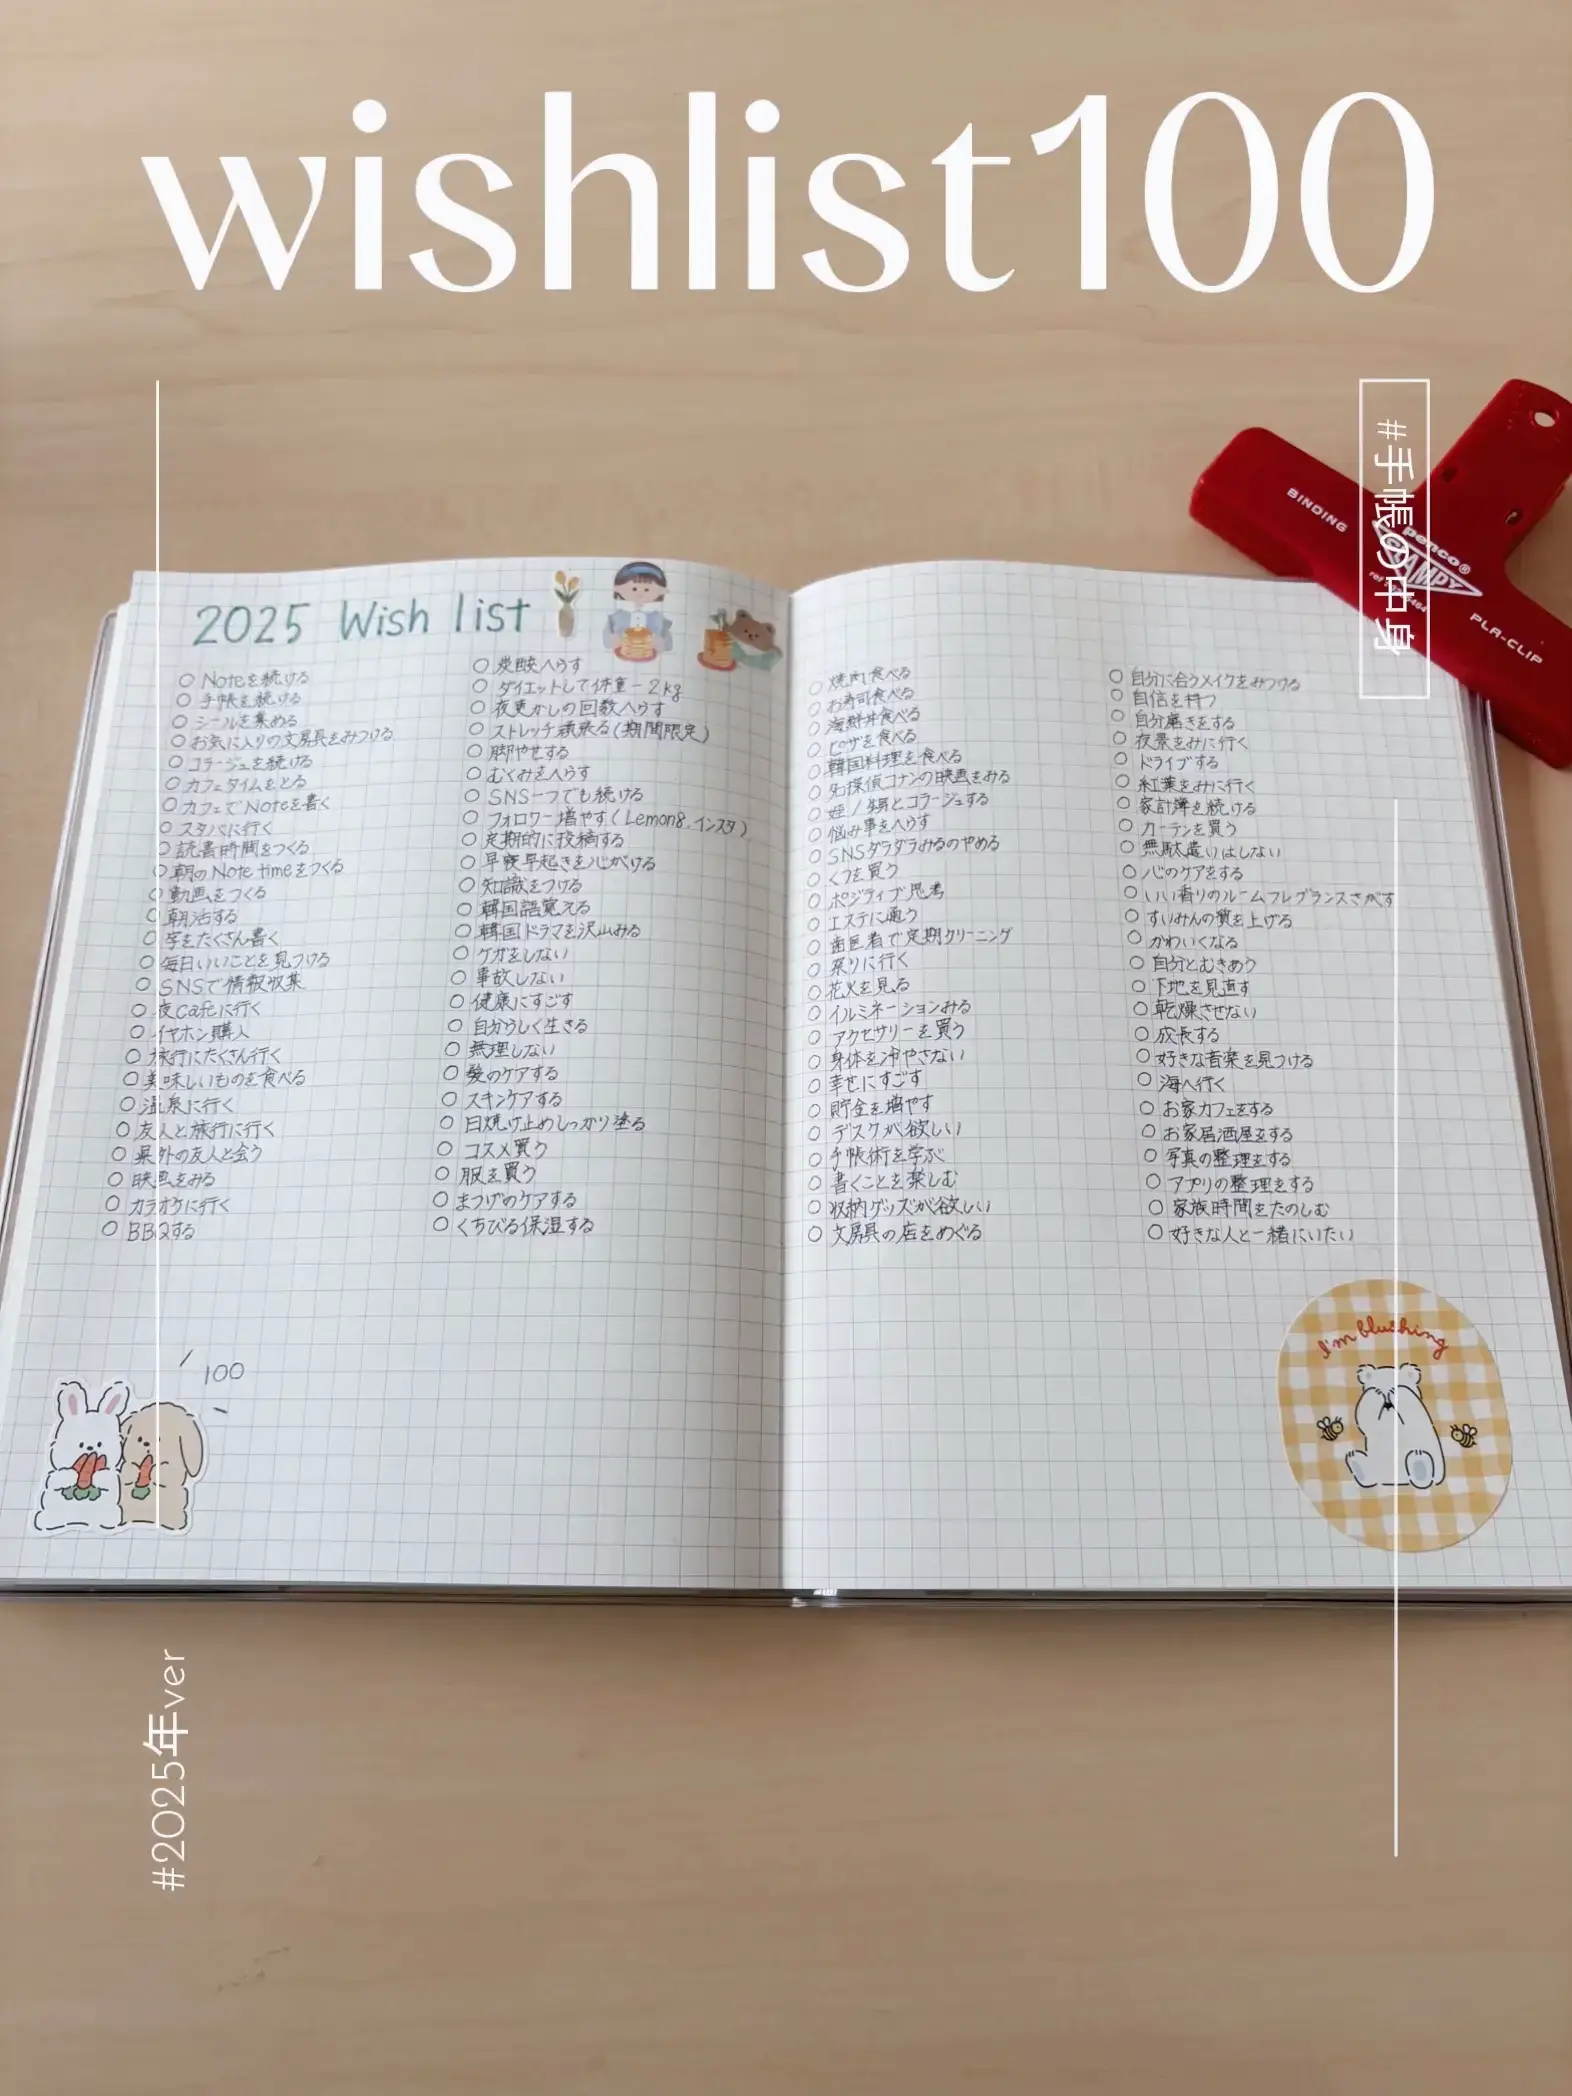 wishlist100
#手帳の中身
BINDING
penco®
CLAMPY
PLA-CLIP
2025 Wish list
○ Noteを続ける
○ 手帳を続ける
○ シールを集める
○ お気に入りの文房具をみつける
○ コラージュを続ける
○ カフェタイムをとる
○ カフェでNoteを書く
○ スタバに行く
○ 読書時間をつくる
○ 朝のNote timeをつくる
○ 動画をつくる
○ 朝活する
○ 字をたくさん書く
○ 毎日いいことを見つける
○ SNSで情報収集
○ 夜cafeに行く
○ イヤホン購入
○ 旅行にたくさん行く
○ 美味しいものを食べる
○ 温泉に行く
○ 友人と旅行に行く
○ 県外の友人と会う
○ 映画をみる
○ カラオケに行く
○ BBQする
○ 炭酸へらす
○ ダイエットして体重-2kg
○ 夜更かしの回数へらす
○ ストレッチ頑張る(期間限定)
○ 脚やせする
○ むくみをへらす
○ SNS一つでも続ける
○ フォロワー増やす(Lemon8,インスタ)
○ 定期的に投稿する
○ 早寝早起きを心がける
○ 知識をつける
○ 韓国語覚える
○ 韓国ドラマを沢山みる
○ ケガをしない
○ 事故しない
○ 健康にすごす
○ 自分らしく生きる
○ 無理しない
○ 髪のケアする
○ スキンケアする
○ 日焼け止めしっかり塗る
○ コスメ買う
○ 服を買う
○ まつげのケアする
○ くちびる保湿する
○ 焼肉食べる
○ お寿司食べる
○ 海鮮丼食べる
○ ピザを食べる
○ 韓国料理を食べる
○ 名探偵コナンの映画をみる
○ 姪ノ甥とコラージュする
○ 悩み事をへらす
○ SNSダラダラみるのやめる
○ くつを買う
○ ポジティブ思考
○ エステに通う
○ 歯医者で定期クリーニング
○ 祭りに行く
○ 花火を見る
○ イルミネーションみる
○ アクセサリーを買う
○ 身体を冷やさない
○ 幸せにすごす
○ 貯金を増やす
○ デスクが欲しい
○ 手帳術を学ぶ
○ 書くことを楽しむ
○ 収納グッズが欲しい
○ 文房具の店をめぐる
○ 自分に合うメイクをみつける
○ 自信を持つ
○ 自分磨きをする
○ 夜景をみに行く
○ ドライブする
○ 紅葉をみに行く
○ 家計簿を続ける
○ カーテンを買う
○ 無駄遣いはしない
○ 心のケアをする
○ いい香りのルームフレグランスさがす
○ すいみんの質を上げる
○ かわいくなる
○ 自分とむきあう
○ 下地を見直す
○ 乾燥させない
○ 成長する
○ 好きな音楽を見つける
○ 海へ行く
○ お家カフェをする
○ お家居酒屋をする
○ 写真の整理をする
○ アプリの整理をする
○ 家族時間をたのしむ
○ 好きな人と一緒にいたい
100
I'm blushing
#2025年ver